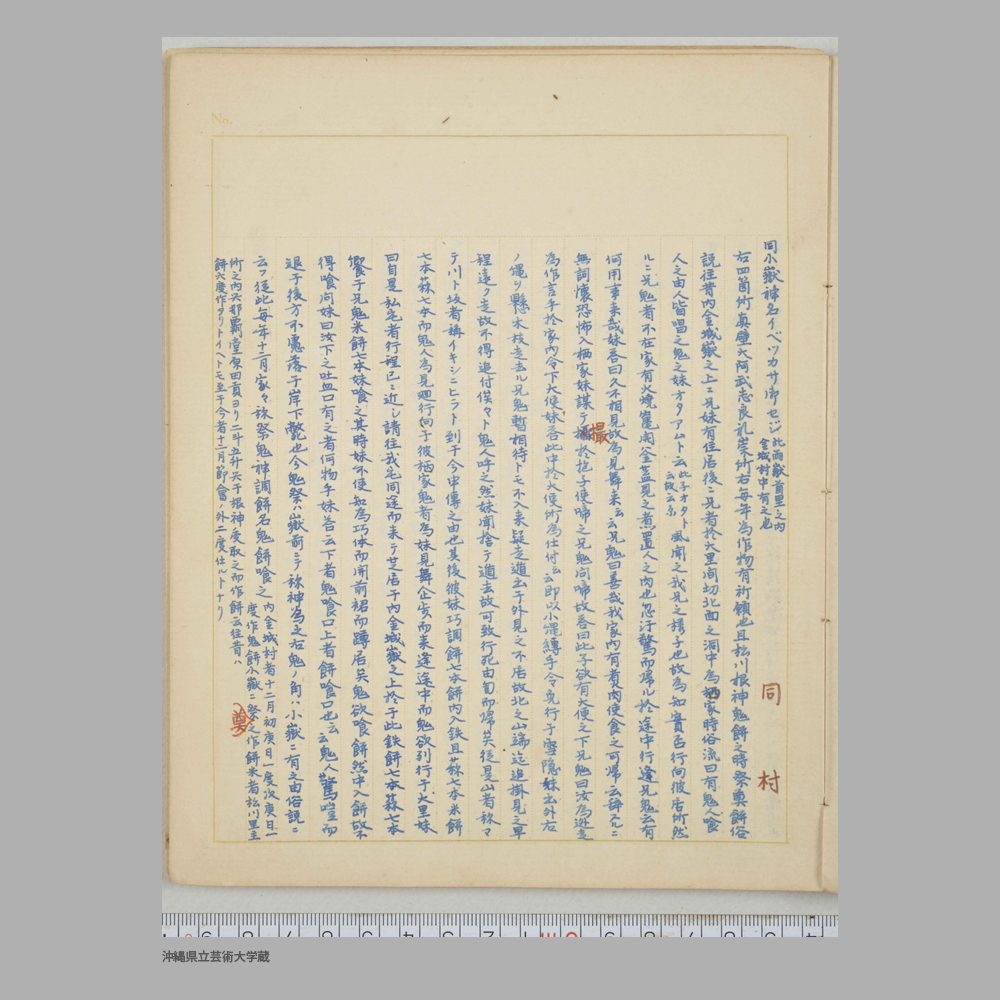 同小嶽神名イベツカサ御セジ 此両嶽首里之内金城村中有之也 同村
右四箇所真壁大阿武志良礼崇所右毎年為作物有祈願也且松川根神鬼餅之時祭奠餅俗
説往昔内金城嶽之上ニ兄妹有住居後ニ兄者於大里間切北面之洞中為栖家時俗流曰有鬼人喰
人之由人皆唱之鬼之妹オタアムト云 此ヲオタト云故云爾 風聞之我兄之様子也故為知実否行向彼居所然
ルニ兄鬼者不在家有火焼竈開釜蓋見之煮置人之肉也忽汗驚而帰ル於途中行逢兄鬼云有
何用事来哉妹答曰久不相見故為見舞来云云兄鬼曰善哉我家内有煮肉使食之可帰云辞スルニ
無詞懐恐怖入栖家妹謀テ撮於抱子使啼之兄鬼問啼故答曰此子欲有大便之下兄鬼曰汝為逃走
為作言乎於家内令下大便妹答此中於大便所為仕付云云即以小縄縛手令免行于雪隠妹出外右
ノ縄ヲ懸木枝走去ル兄鬼暫相待トモ不入来疑走遁出于外見之不居故北之山端迄追掛見之早
程遠ク走故不得追付俟々ト鬼人呼之然妹聞捨テ遁去故可致行死由匍而帰矣従是山者称マ
テ川ト坂者称イキシニヒラト到于今申伝之由也其後彼妹巧調餅七本餅内入鉄且蒜七本米餅
七本蒜七本而鬼人為見廻行向于彼栖家鬼者為妹見舞企歩而来逢途中而鬼欲列行于大里妹
曰自是私宅者行程已ニ近シ請往我宅同途而来ニテ芝居于内金城嶽之上於于此鉄餅七本蒜七本
饗于兄鬼米餅七本妹喰之其時妹不使知為巧体而開前裙而蹲居矣鬼欲喰餅然中入餅故不
得喰問妹曰汝下之吐血口有之者何物乎妹答云下者鬼喰口上者餅喰口也云云鬼人驚噎而
退于後方不慮落于岸下斃也今鬼祭ハ嶽前ニテ祢神為之右鬼ノ角ハ小嶽ニ有之由俗説ニ
云フ従此毎年十二月家々於祭鬼神調餅名鬼餅喰之 内金城村者十二月初庚日一度次庚日一度作鬼餅小嶽ニ祭奠之作餅米者松川里主
所之内大那覇堂原田貢ヨリ二斗五升六干根神受取之而作餅云往昔ハ
餅六度作タリトイヘトモ至于今者十二月節会ノ外二度仕ルトナリ
撮
奠
No.
沖縄県立芸術大学蔵